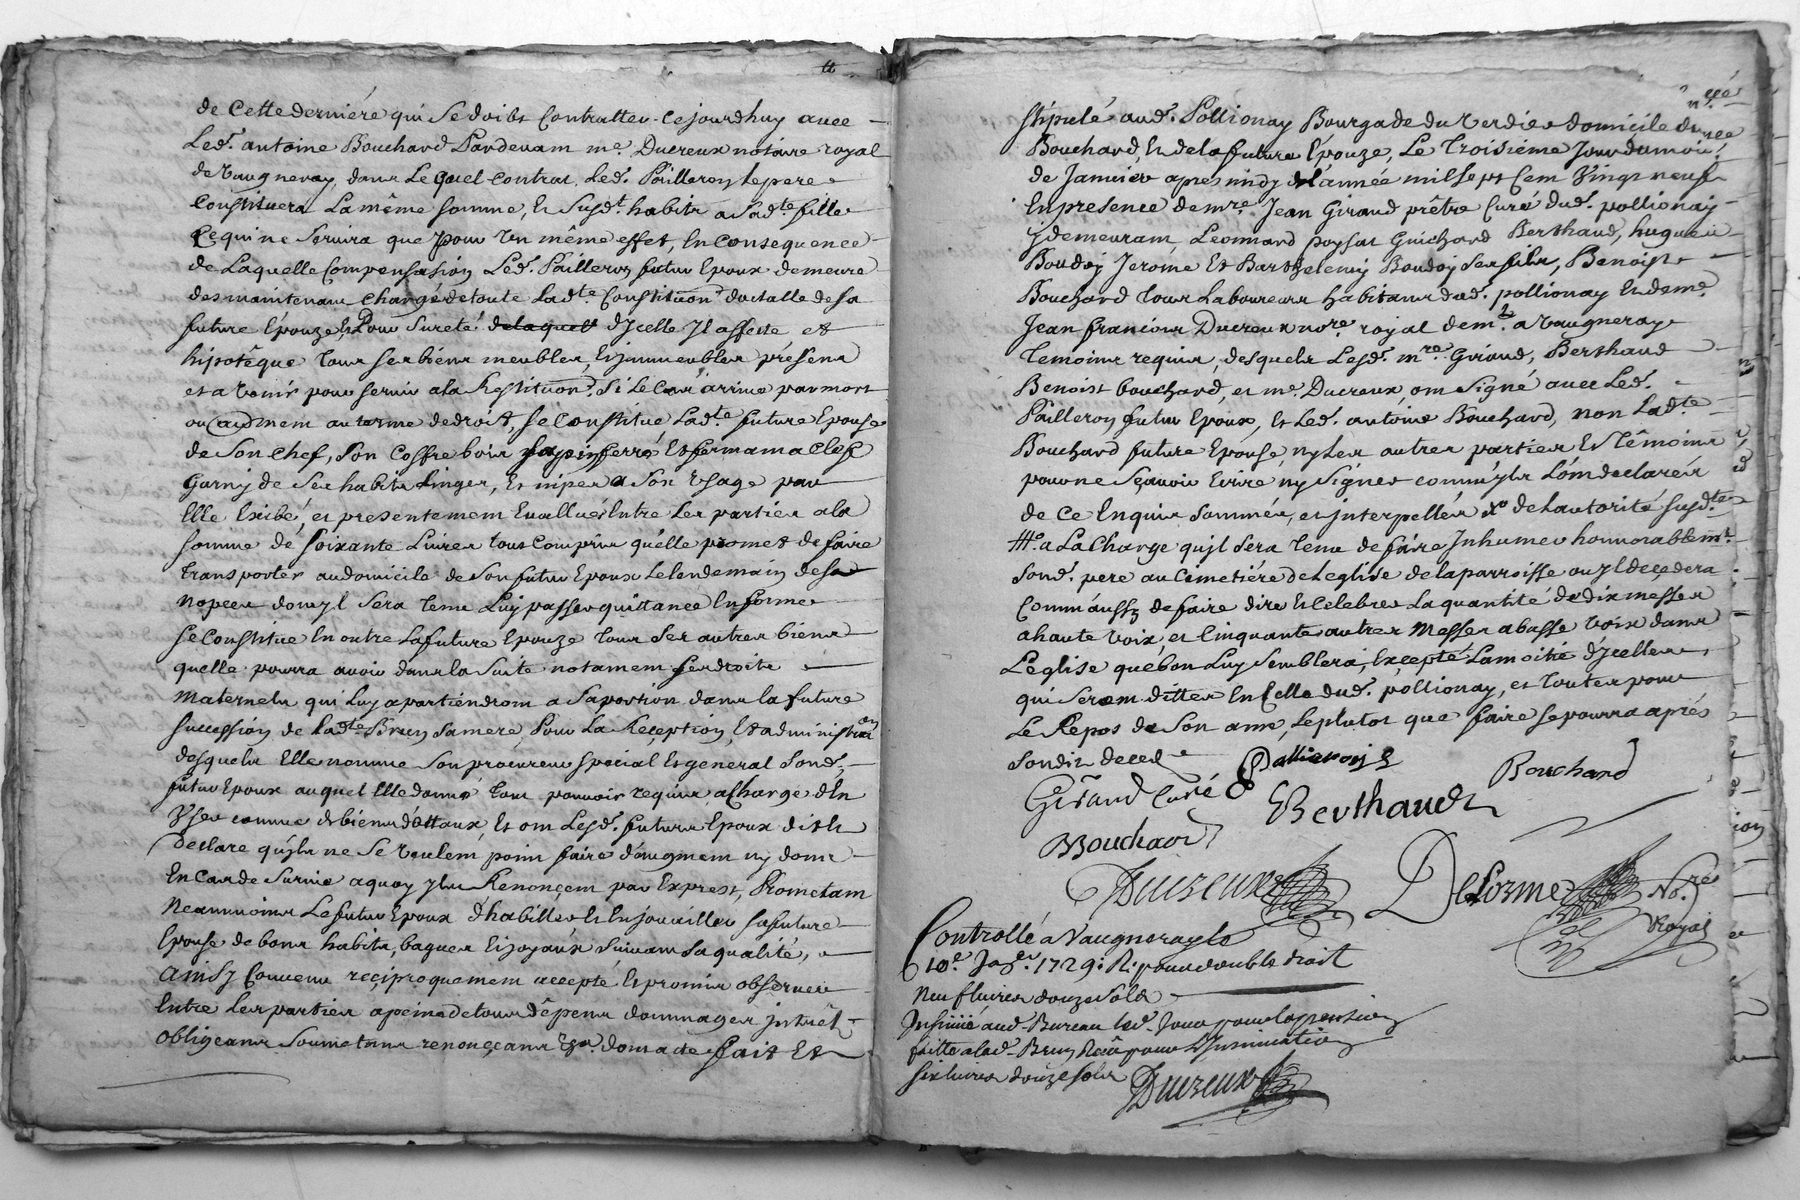 de Cette derniére qui Se doibt Contratter Cejourdhuy avec
Led. antoine Bouchard Pardevam me. Ducreux notaire royal
de Vaugneray, dans Lequel Contrat Led. Pailleron le pere
Constituera La même Somme, Et Susd.t habits a Sad.te fille
Ce qui ne Servira que pour Un même effet, En Consequence
de Laquelle Compensasion Led. Pailleron futur Epoux demeure
des maintenant Chargé de toute Lad.te Constituon. dostalle de Sa
future Epouze, Et Pour Sureté delaquell d'Jcelle Jl affecte et
hipotêque tous Ses biens meubles, Et jmmeubles présens
et a Venir pour Servir ala Restituon. Si Le Cas arrive par mort
ou audrem au terme dedroit, Se Constitue Lad.te future Epouse
de Son Chef, Son Coffre bois Sapin ferré Et fermam a Clef
Garny de Ses habits Linges, Et nipes a Son Usage par
Elle Exibé, et presentement Evallués Entre Les parties ala
Somme de Soixante Livres tous Compris qu'élle promet de faire
transporter au domicile de Son futur Epoux Le lendemain de Sa
nopces donc yl Sera tenu Luy passer quittance En forme
Se Constitue En outre La future Epouze tous Ses autres biens
quelle pourra avoir dans la Suite notamem Ses droits
Maternels qui Luy apartiendrom a Saportion dans la future
Succession de Lad.te Brun Samere, Pour La Reception, Et administraon
desquels Elle nomme Son procureur Spécial Et general Sond.
futur Epoux auquel Elle donne tout pouvoir requis, a Charge d'En
User comme de biens dôttaux, Et om Lesd. futurs Epoux dit Et
Declaré qu'yls ne Se Veulent point faire d'augmem ny dons
En Cas de Survie aquoy yls Renonçem par Exprest, Prometam
Neanmoins Le futur Epoux d'habiller Et Enjouailler Safuture
Epouse de bons habits, bagues Et joyaux Suivam Sa qualité,
Ainsy Convenu reciproquemem accepté Et promis observer
Entre Les parties apeine de tous dêpens dommages jntrêt
obligeans Soumettans renonçans &a. dom acte fait Et
stipulé aud. Pollionay Bourgade du Verdier domicile dud
Bouchard, Et dela future Epouze, Le troisiéme Jour du mois
de Janvier apres midy de l'année mil Sept Cem Vingt neuf
En presence de mre. Jean Giraud prêtre Curé dud. pollionay
y demeuram Leonnard poysat Guichard Berthaud, hugues
Boudoy Jerôme Et Barthelemy Boudoy Ses fils, Benoist
Bouchard tous Laboureurs habitans dud. pollionay Et de me.
Jean francois Ducreux nore. royal dem.t a Vaugneray
temoins requis, desquels Lesd. mre. Giraud, Berthaud
Benoist bouchard, et me. Ducreux, om Signé avec Led.
Pailleron futur Epoux, Et Led. antoine Bouchard, non Lad.te
Bouchard future Epouse, ny Les autres parties Et têmoins
pour ne Sçavoir Ecrire ny Signer comm'yls L'om declarés
de Ce Enquis Sommés, et jnterpellés xo de Lautorité Susd.te
# a La Charge qu'jl Sera tenu de faire Jnhumer honnorablem.t
Sond. pere au Cimetiére de L'eglise de la parroisse ou yl deçedera
Comm'aussy de faire dire Et Celebrer La quantité de dix messes
a haute Voix, et Cinquante autres Messes abasse Voix dans
L'eglise que bon Luy Semblera, Excepté Lamoitié d'Jcelles,
qui Seront dittes En Celle dud. pollionay, et toutes pour
Le Repos de Son ame, Le plutot que faire Se pourra aprés
Sondit deced
Pallieron
Bouchard
Giraud Curé
Berthaud
Bouchard
Ducreux
Delorme No.re
Royal
Controllé a Vaugneray le
10e. Jaer. 1729: R. pour double droit
Neuf livres douze Sols
Jnsinué aud. Bureau led. Jour pour la pension
faitte a lad. Brun Reçu pour L'Jnsinuation
Six livres douze Sols
Ducreux